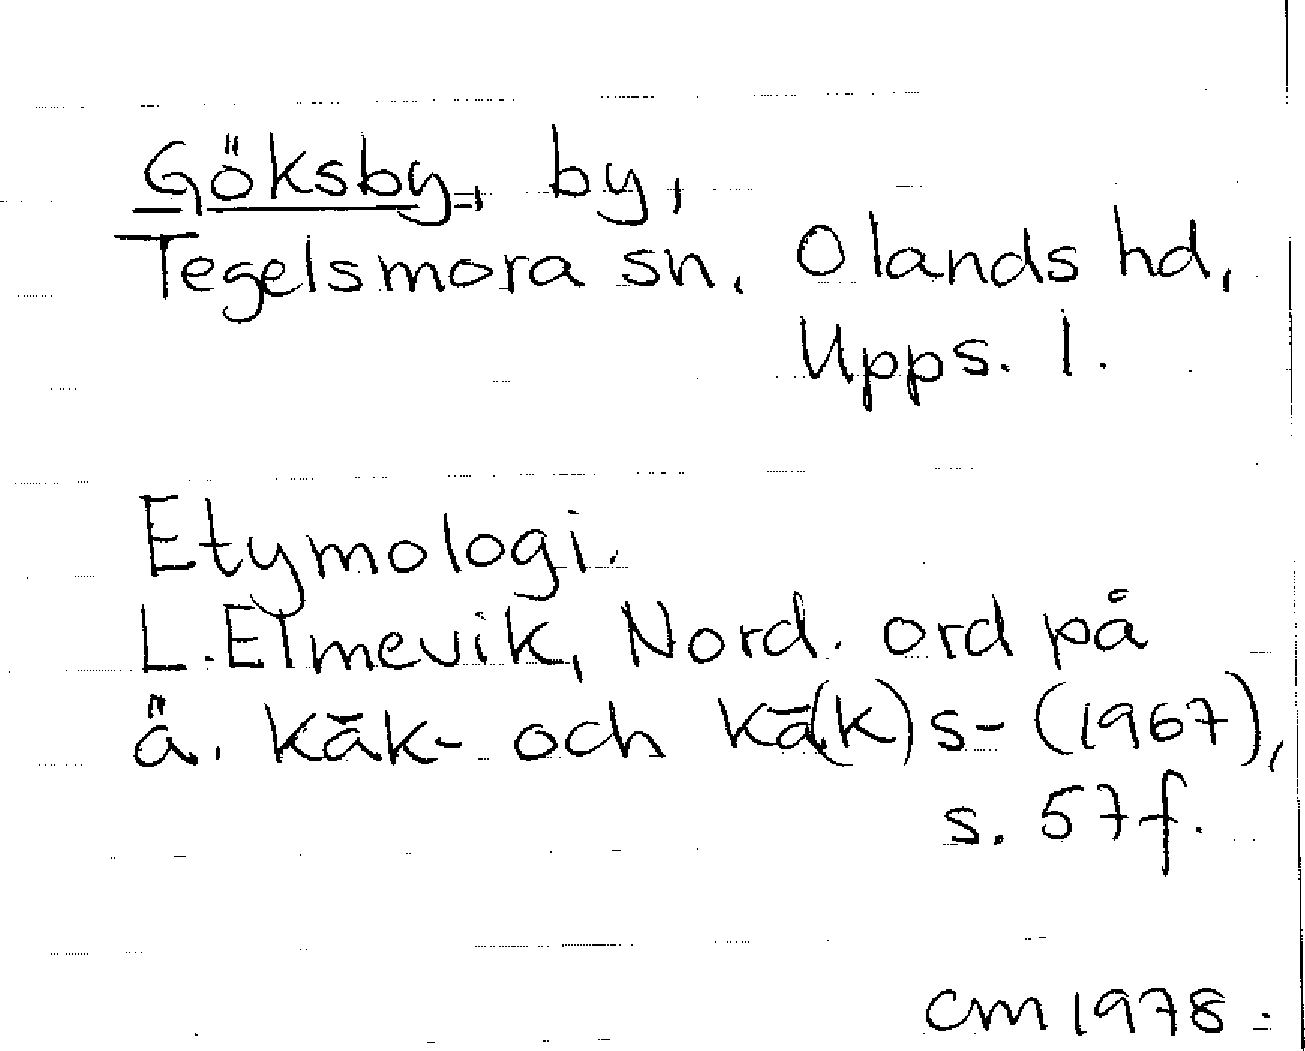 Göksby, by,
Tegelsmora sn, Olands hd,
Upps. l.
Etymologi.
L. Elmevik, Nord. ord på
ä. kāk- och kā(k)s- (1967),
s. 57f.
CM 1978